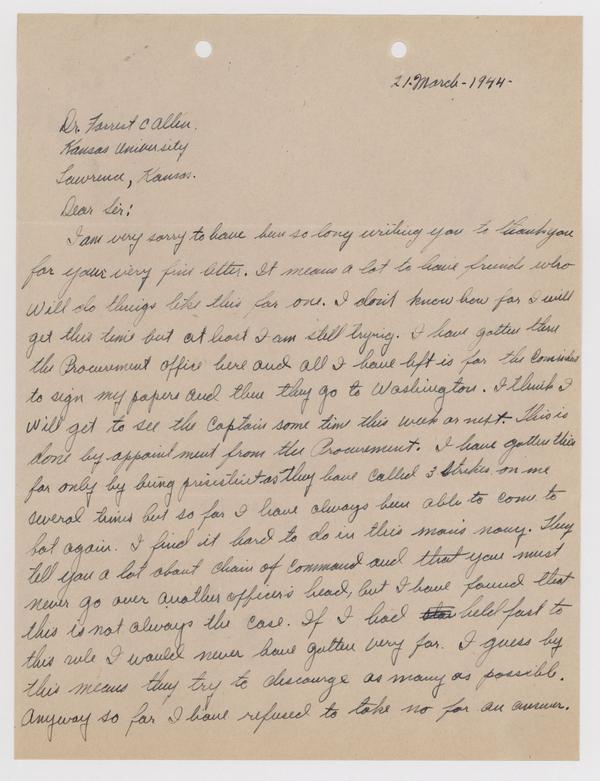 21-March-1944-
Dr. Forrest C Allen.
Kansas University
Lawrence, Kansas.
Dear Sir:
I am very sorry to have been so long writing you to thank you
for your very fine letter. It means a lot to have friends who
will do things like this for one. I don't know how far I will
get this time but at least I am still trying. I have gotten thru
the Procurement office here and all I have left is for the
to sign my papers and then they go to Washington. I think I
will get to see the Captain some time this week or next. This is
done by appointment from the Procurement. I have gotten this
far only by being as they have called 3 strikes on me
several times but so far I have always been able to come to
bat again. I find it hard to do in this man's navy. They
tell you a lot about chain of command and that you must
never go over another officer's head, but I have found that
this is not always the case. If I had held fast to
this rule I would never have gotten very far. I guess by
this means they try to discourge as many as possible.
Anyway so far I have refused to take no for an answer.